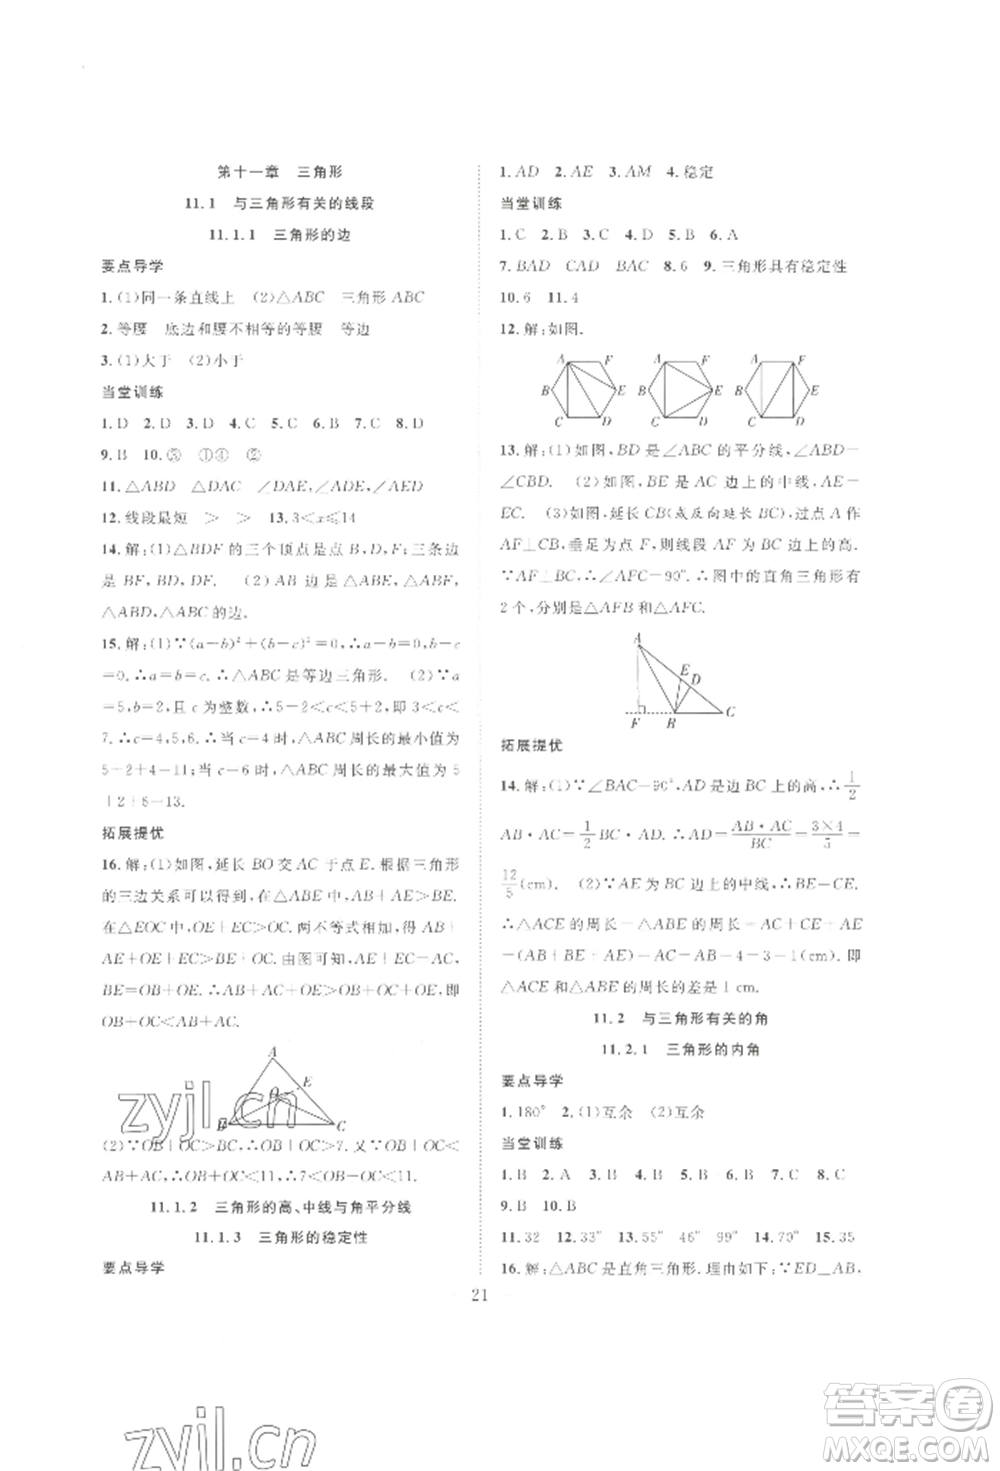 第十一章 三角形
11.1 与三角形有关的线段
11.1.1 三角形的边
要点导学
1.(1)同一条直线上 (2)△ABC 三角形 ABC
2.等腰 底边和腰不相等的等腰 等边
3.(1)大于 (2)小于
当堂训练
1.D 2.D 3.D 4.C 5.C 6.C 7.B 8.D
9.B 10.⑤ ①④ ②
11.△ABD △DAC ∠DAE,∠ADE ∠AED
12.线段最短 > > 13.3<x≤14
14.解:(1)△BDF 的三个顶点是点 B,D,F;三条边
是 BF,BD,DF. (2)AB 边是△ABF,△ABD,
△ABC 的边.
15.解:(1)∵(a-b)²+(b-c)²=0,∴a-b=0,b-c
=0.∴a=b=c.∴△ABC 是等边三角形. (2)∵a
=5,b=2,且 c 为整数,∴5-2<c<5+2,即 3<c<
7.∴c=4,5,6.当 c=4 时,△ABC 周长的最小值为
5+2+4=11;当 c=6 时,△ABC 周长的最大值为 5
+2+6=13.
拓展提优
16.解:(1)如图,延长 BO 交 AC 于点 E.根据三角形
的三边关系可以得到,在△ABE 中,AB+AE>BE.
在△EOC 中,OE+EC>OC.两不等式相加,得 AB
+AC>OB+OC.由图可知,AC=AE+EC,
BE=OB+OE.∴AB+AC>OB+OC,即
OB+OC<AB+AC.
A
E
O
B
C
(2)∵OB+OC>BC,∴OB+OC>7.又∵OB+OC<
AB+AC,∴OB+OC<11.∴7<OB+OC<11.
11.1.2 三角形的高、中线与角平分线
11.1.3 三角形的稳定性
要点导学
1.AD 2.AE 3.AM 4.稳定
当堂训练
1.C 2.B 3.C 4.D 5.B 6.A
7.BAD CAD BAC 8.6 9.三角形具有稳定性
10.6 11.4
12.解:如图.
A F B E C D
A F B E C D
A F B E C D
13.解:(1)如图,BD 是∠ABC 的平分线,∠ABD=
∠CBD. (2)如图,BE 是 AC 边上的中线,AE=
EC. (3)如图,延长 CB(或反向延长 BC),过点 A 作
AF⊥CB,垂足为点 F,则线段 AF 为 BC 边上的高.
∵AF⊥BC,∴∠AFC=90°.∴图中的直角三角形有
2个,分别是△AFB 和△AFC.
A
E D
F B C
拓展提优
14.解:(1)∵∠BAC=90°,AD 是边 BC 上的高,∴1/2
AB·AC=1/2 BC·AD.∴AD=AB·AC/BC=3×4/5=
12/5(cm). (2)∵AE 为 BC 边上的中线,∴BE=CE.
∴△ACE 的周长-△ABE 的周长=AC+CE+AE
-(AB+BE+AE)=AC-AB=4-3=1(cm).
即△ACE 和△ABE 的周长的差是1 cm.
11.2 与三角形有关的角
11.2.1 三角形的内角
要点导学
1.180° 2.(1)互余 (2)互余
当堂训练
1.B 2.A 3.B 4.C 5.B 6.B 7.C 8.C
9.B 10.B
11.32 12.64 13.33° 46° 99° 14.70° 15.35
16.解:△ABC 是直角三角形.理由如下:∵ED⊥AB,
21
zyjl.cn
zyjl.cn
答案卷
MXQE.COM